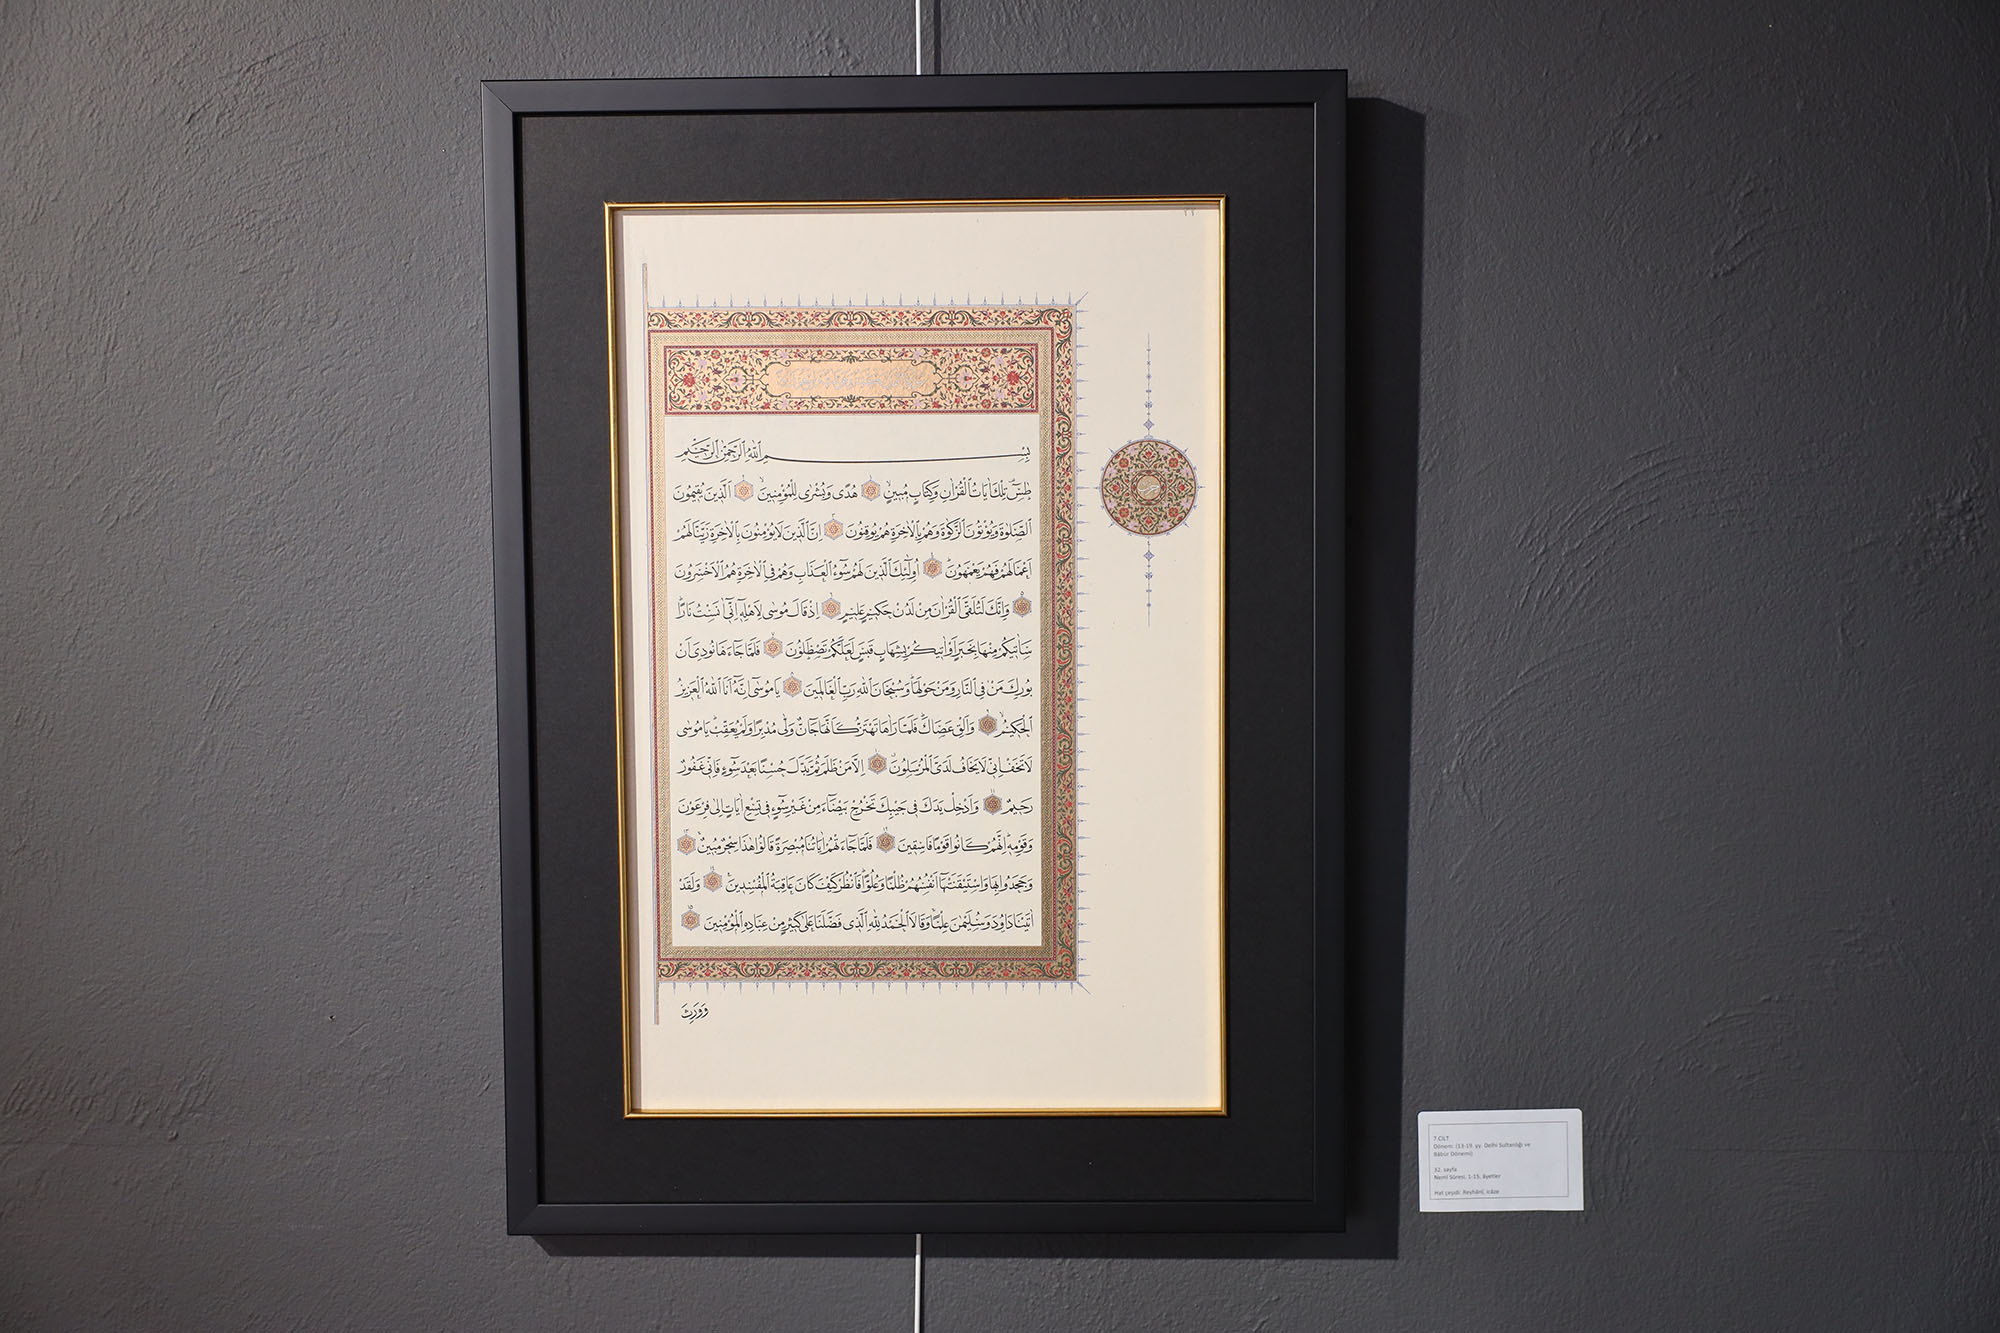 بِسْمِ اللهِ الرَّحْمٰنِ الرَّحِيمِ
طٰسٓ تِلْكَ اٰيَاتُ الْقُرْاٰنِ وَكِتَابٍ مُبِينٍ ۝ هُدًى وَبُشْرٰى لِلْمُؤْمِنِينَ ۝ اَلَّذِينَ يُقِيمُونَ
الصَّلٰوةَ وَيُؤْتُونَ الزَّكٰوةَ وَهُمْ بِالْاٰخِرَةِ هُمْ يُوقِنُونَ ۝ اِنَّ الَّذِينَ لَا يُؤْمِنُونَ بِالْاٰخِرَةِ زَيَّنَّا لَهُمْ
اَعْمَالَهُمْ فَهُمْ يَعْمَهُونَ ۝ اُولٰٓئِكَ الَّذِينَ لَهُمْ سُٓوءُ الْعَذَابِ وَهُمْ فِي الْاٰخِرَةِ هُمُ الْاَخْسَرُونَ
۝ وَاِنَّكَ لَتُلَقَّى الْقُرْاٰنَ مِنْ لَدُنْ حَكِيمٍ عَلِيمٍ ۝ اِذْ قَالَ مُوسٰى لِاَهْلِهٖٓ اِنِّٓي اٰنَسْتُ نَارًا
سَاٰتِيكُمْ مِنْهَا بِخَبَرٍ اَوْ اٰتِيكُمْ بِشِهَابٍ قَبَسٍ لَعَلَّكُمْ تَصْطَلُونَ ۝ فَلَمَّا جَٓاءَهَا نُودِيَ اَنْ
بُورِكَ مَنْ فِي النَّارِ وَمَنْ حَوْلَهَا وَسُبْحَانَ اللهِ رَبِّ الْعَالَمِينَ ۝ يَا مُوسٰٓى اِنَّهُٓ اَنَا اللهُ الْعَزِيزُ
الْحَكِيمُ ۝ وَاَلْقِ عَصَاكَ فَلَمَّا رَاٰهَا تَهْتَزُّ كَاَنَّهَا جَٓانٌّ وَلّٰى مُدْبِرًا وَلَمْ يُعَقِّبْ يَا مُوسٰى
لَا تَخَفْ اِنِّي لَا يَخَافُ لَدَيَّ الْمُرْسَلُونَ ۝ اِلَّا مَنْ ظَلَمَ ثُمَّ بَدَّلَ حُسْنًا بَعْدَ سُٓوءٍ فَاِنِّي غَفُورٌ
رَحِيمٌ ۝ وَاَدْخِلْ يَدَكَ فِي جَيْبِكَ تَخْرُجْ بَيْضَٓاءَ مِنْ غَيْرِ سُٓوءٍ فِي تِسْعِ اٰيَاتٍ اِلٰى فِرْعَوْنَ
وَقَوْمِهٖ اِنَّهُمْ كَانُوا قَوْمًا فَاسِقِينَ ۝ فَلَمَّا جَٓاءَتْهُمْ اٰيَاتُنَا مُبْصِرَةً قَالُوا هٰذَا سِحْرٌ مُبِينٌ ۝
وَجَحَدُوا بِهَا وَاسْتَيْقَنَتْهَٓا اَنْفُسُهُمْ ظُلْمًا وَعُلُوًّا فَانْظُرْ كَيْفَ كَانَ عَاقِبَةُ الْمُفْسِدِينَ ۝ وَلَقَدْ
اٰتَيْنَا دَاوُدَ وَسُلَيْمٰنَ عِلْمًا وَقَالَا الْحَمْدُ لِلّٰهِ الَّذِي فَضَّلَنَا عَلٰى كَثِيرٍ مِنْ عِبَادِهِ الْمُؤْمِنِينَ ۝
وَوَرِثَ
7.CİLT
Dönem: (13-19. yy. Delhi Sultanlığı ve
Bâbür Dönemi)
32. sayfa
Neml Sûresi; 1-15. âyetler
Hat çeşidi: Reyhânî, icâze